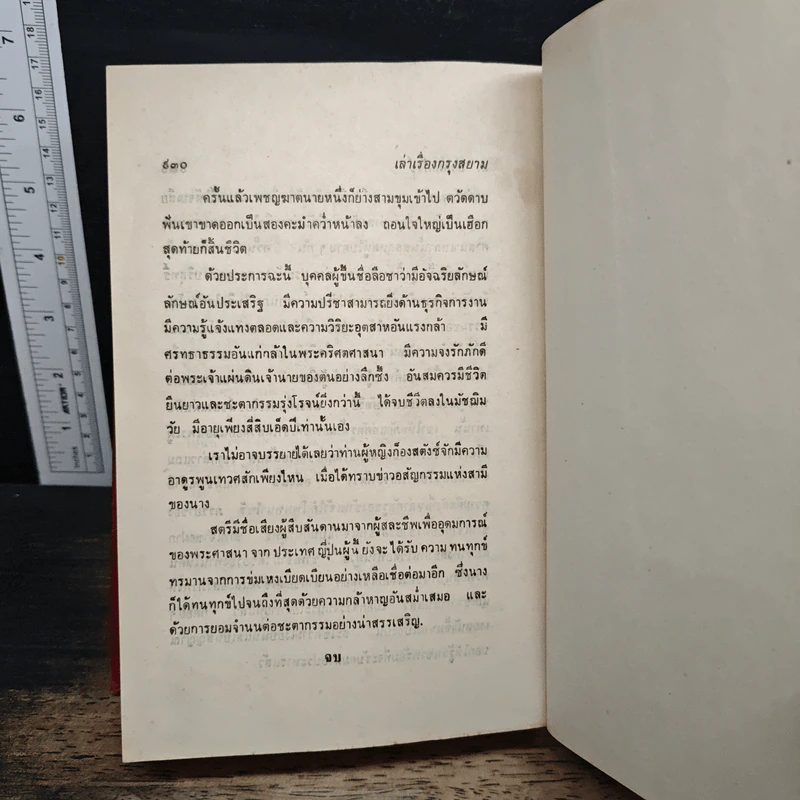 ๙๓๐ เล่าเรื่องกรุงสยาม
ครั้นแล้วเพชฌฆาตนายหนึ่งก็ย่างสามขุมเข้าไป ตวัดดาบ
ฟันเขาขาดออกเป็นสองคะมำคว่ำหน้าลง ถอนใจใหญ่เป็นเฮือก
สุดท้ายก็สิ้นชีวิต
ด้วยประการฉะนี้ บุคคลผู้ขึ้นชื่อลือชาว่ามีอัจฉริยลักษณ์
ลักษณ์อันประเสริฐ มีความปรีชาสามารถยิ่งด้านธุรกิจการงาน
มีความรู้แจ้งแทงตลอดและความวิริยะอุตสาหอันแรงกล้า มี
ศรทธาธรรมอันแก่กล้าในพระคริศตศาสนา มีความจงรักภักดี
ต่อพระเจ้าแผ่นดินเจ้านายของตนอย่างลึกซึ้ง อันสมควรมีชีวิต
ยืนยาวและชะตากรรมรุ่งโรจน์ยิ่งกว่านี้ ได้จบชีวิตลงในมัชฌิม
วัย มีอายุเพียงสี่สิบเอ็ดปีเท่านั้นเอง
เราไม่อาจบรรยายได้เลยว่าท่านผู้หญิงก็องสตังซ์จักมีความ
อาดูรพูนเทวศสักเพียงไหน เมื่อได้ทราบข่าวอสัญกรรมแห่งสามี
ของนาง
สตรีมีชื่อเสียงผู้สืบสันดานมาจากผู้สละชีพเพื่ออุดมการณ์
ของพระศาสนา จาก ประเทศ ญี่ปุ่นผู้นี้ ยังจะ ได้รับ ความ ทนทุกข์
ทรมานจากการข่มเหงเบียดเบียนอย่างเหลือเชื่อต่อมาอีก ซึ่งนาง
ก็ได้ทนทุกข์ไปจนถึงที่สุดด้วยความกล้าหาญอันสม่ำเสมอ และ
ด้วยการยอมจำนนต่อชะตากรรมอย่างน่าสรรเสริญ.
จบ